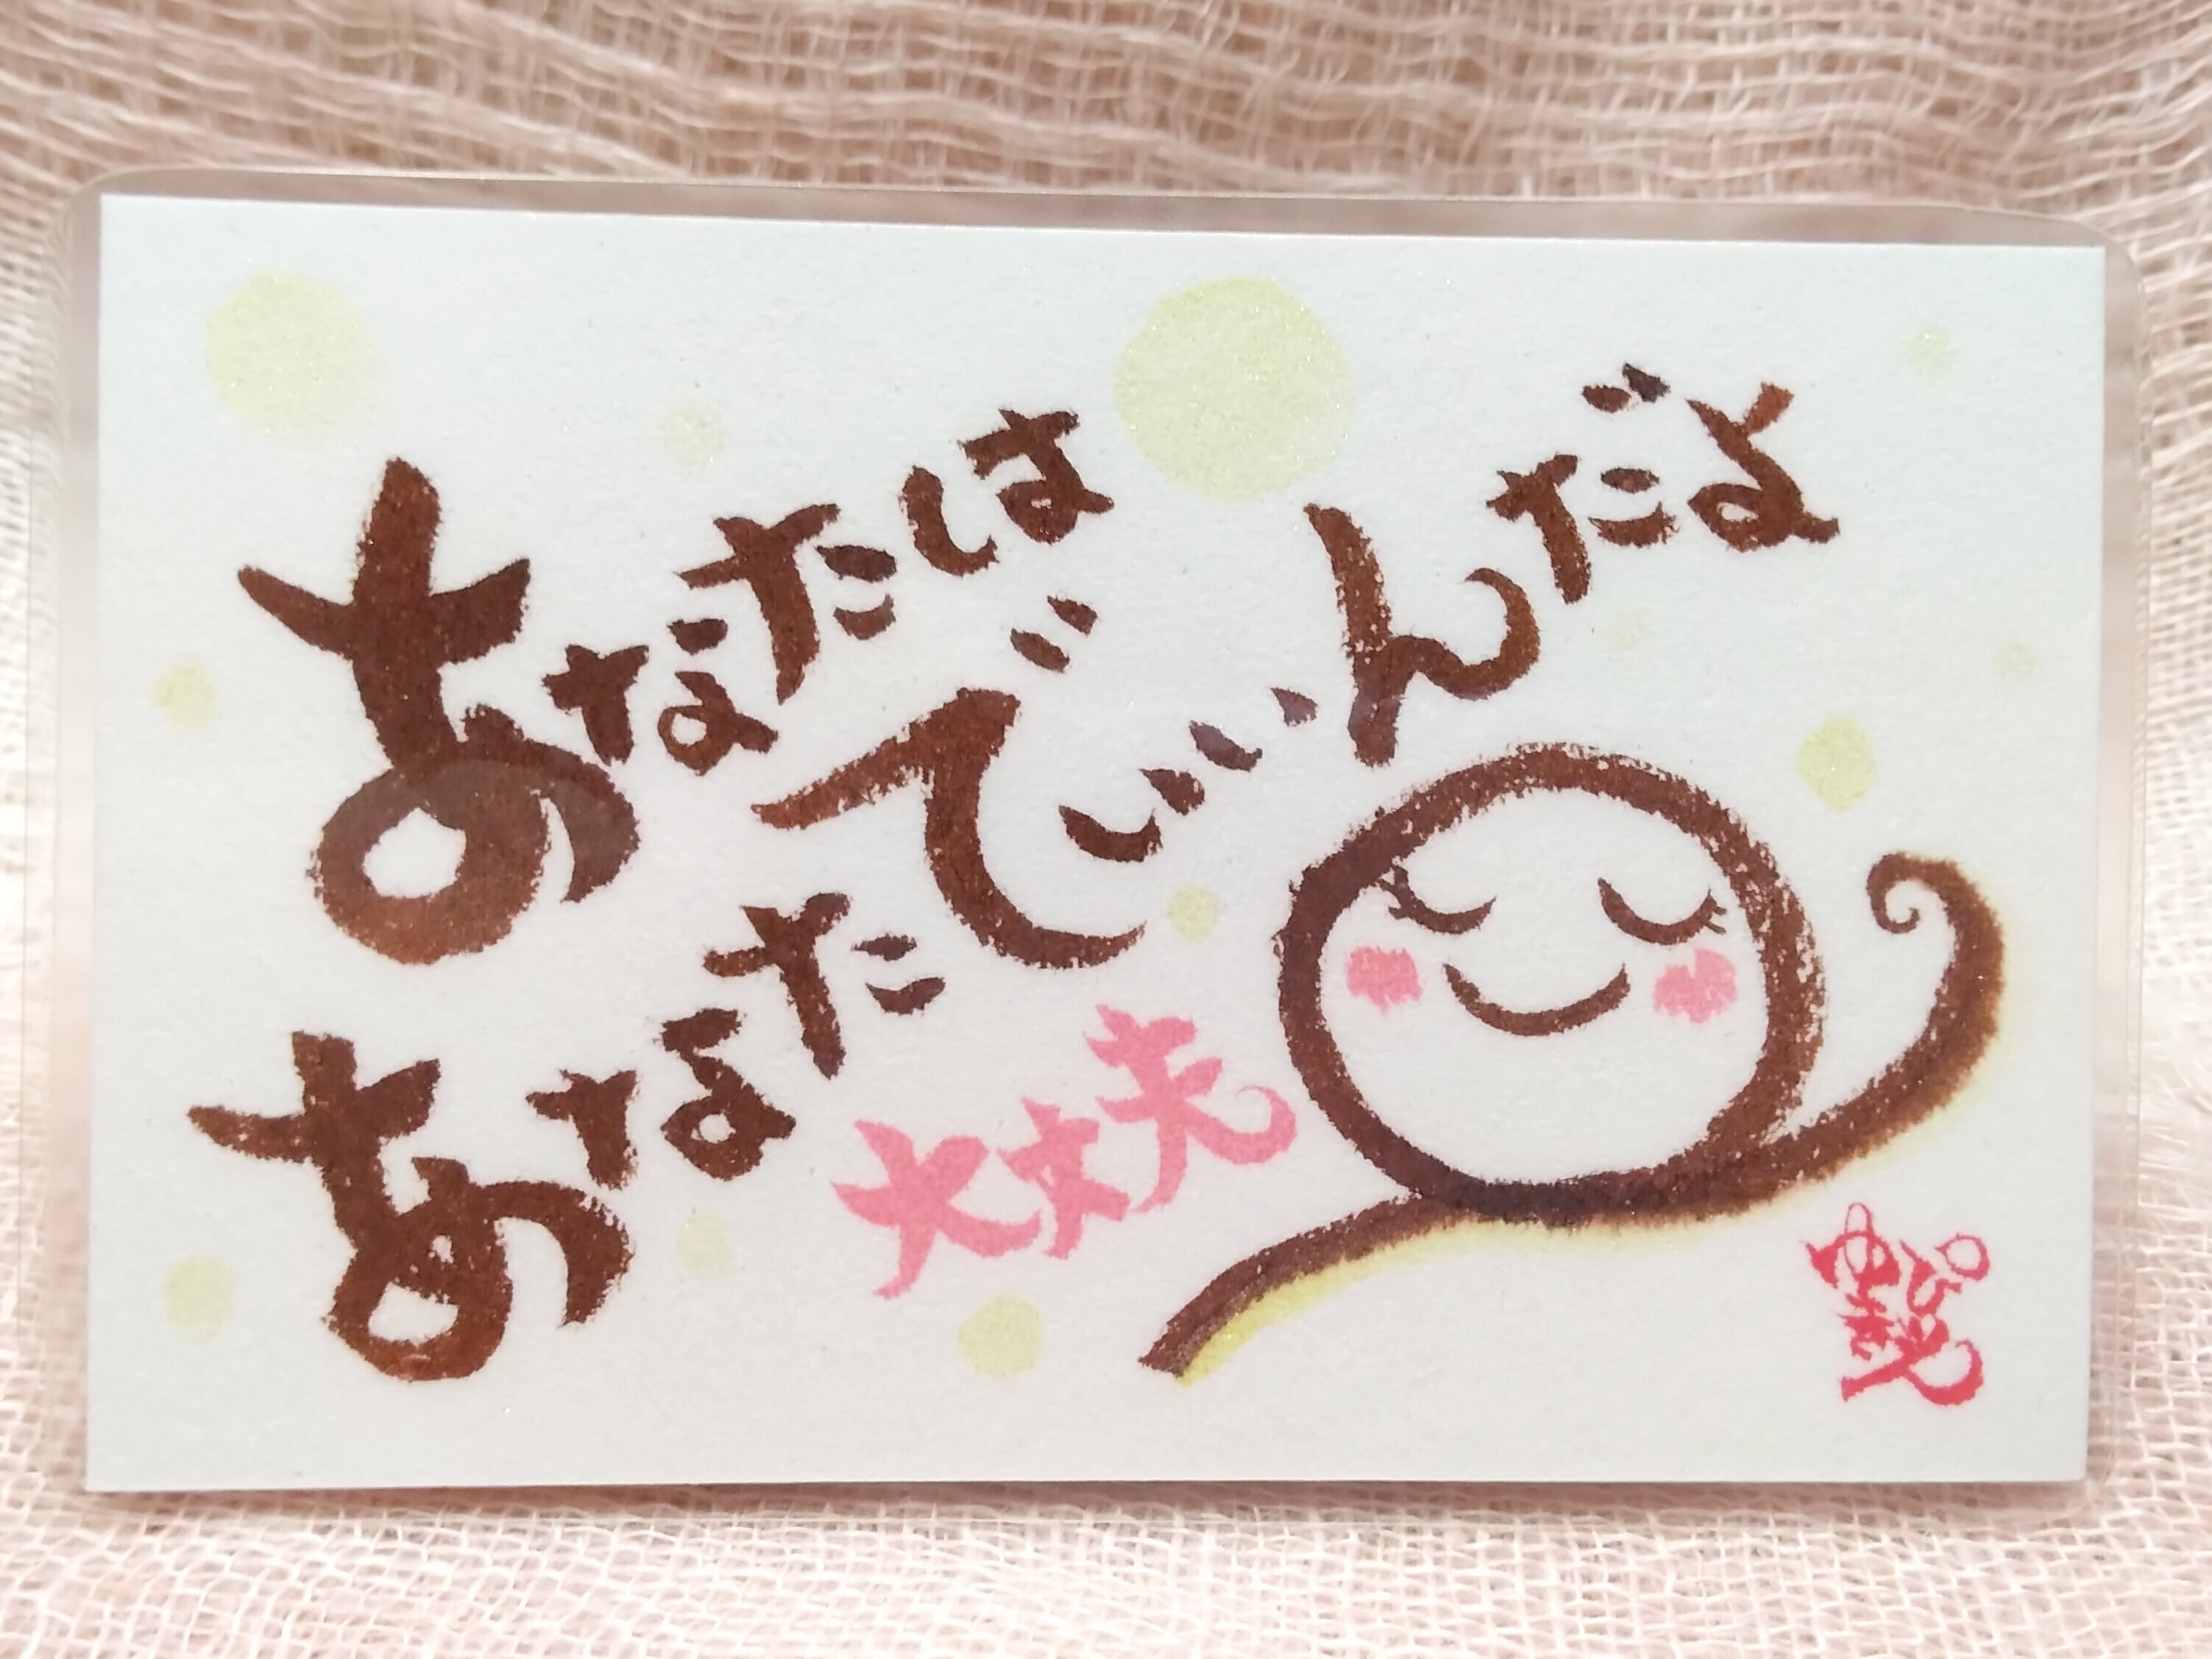 あなたは
あなたでいいんだよ
大丈夫